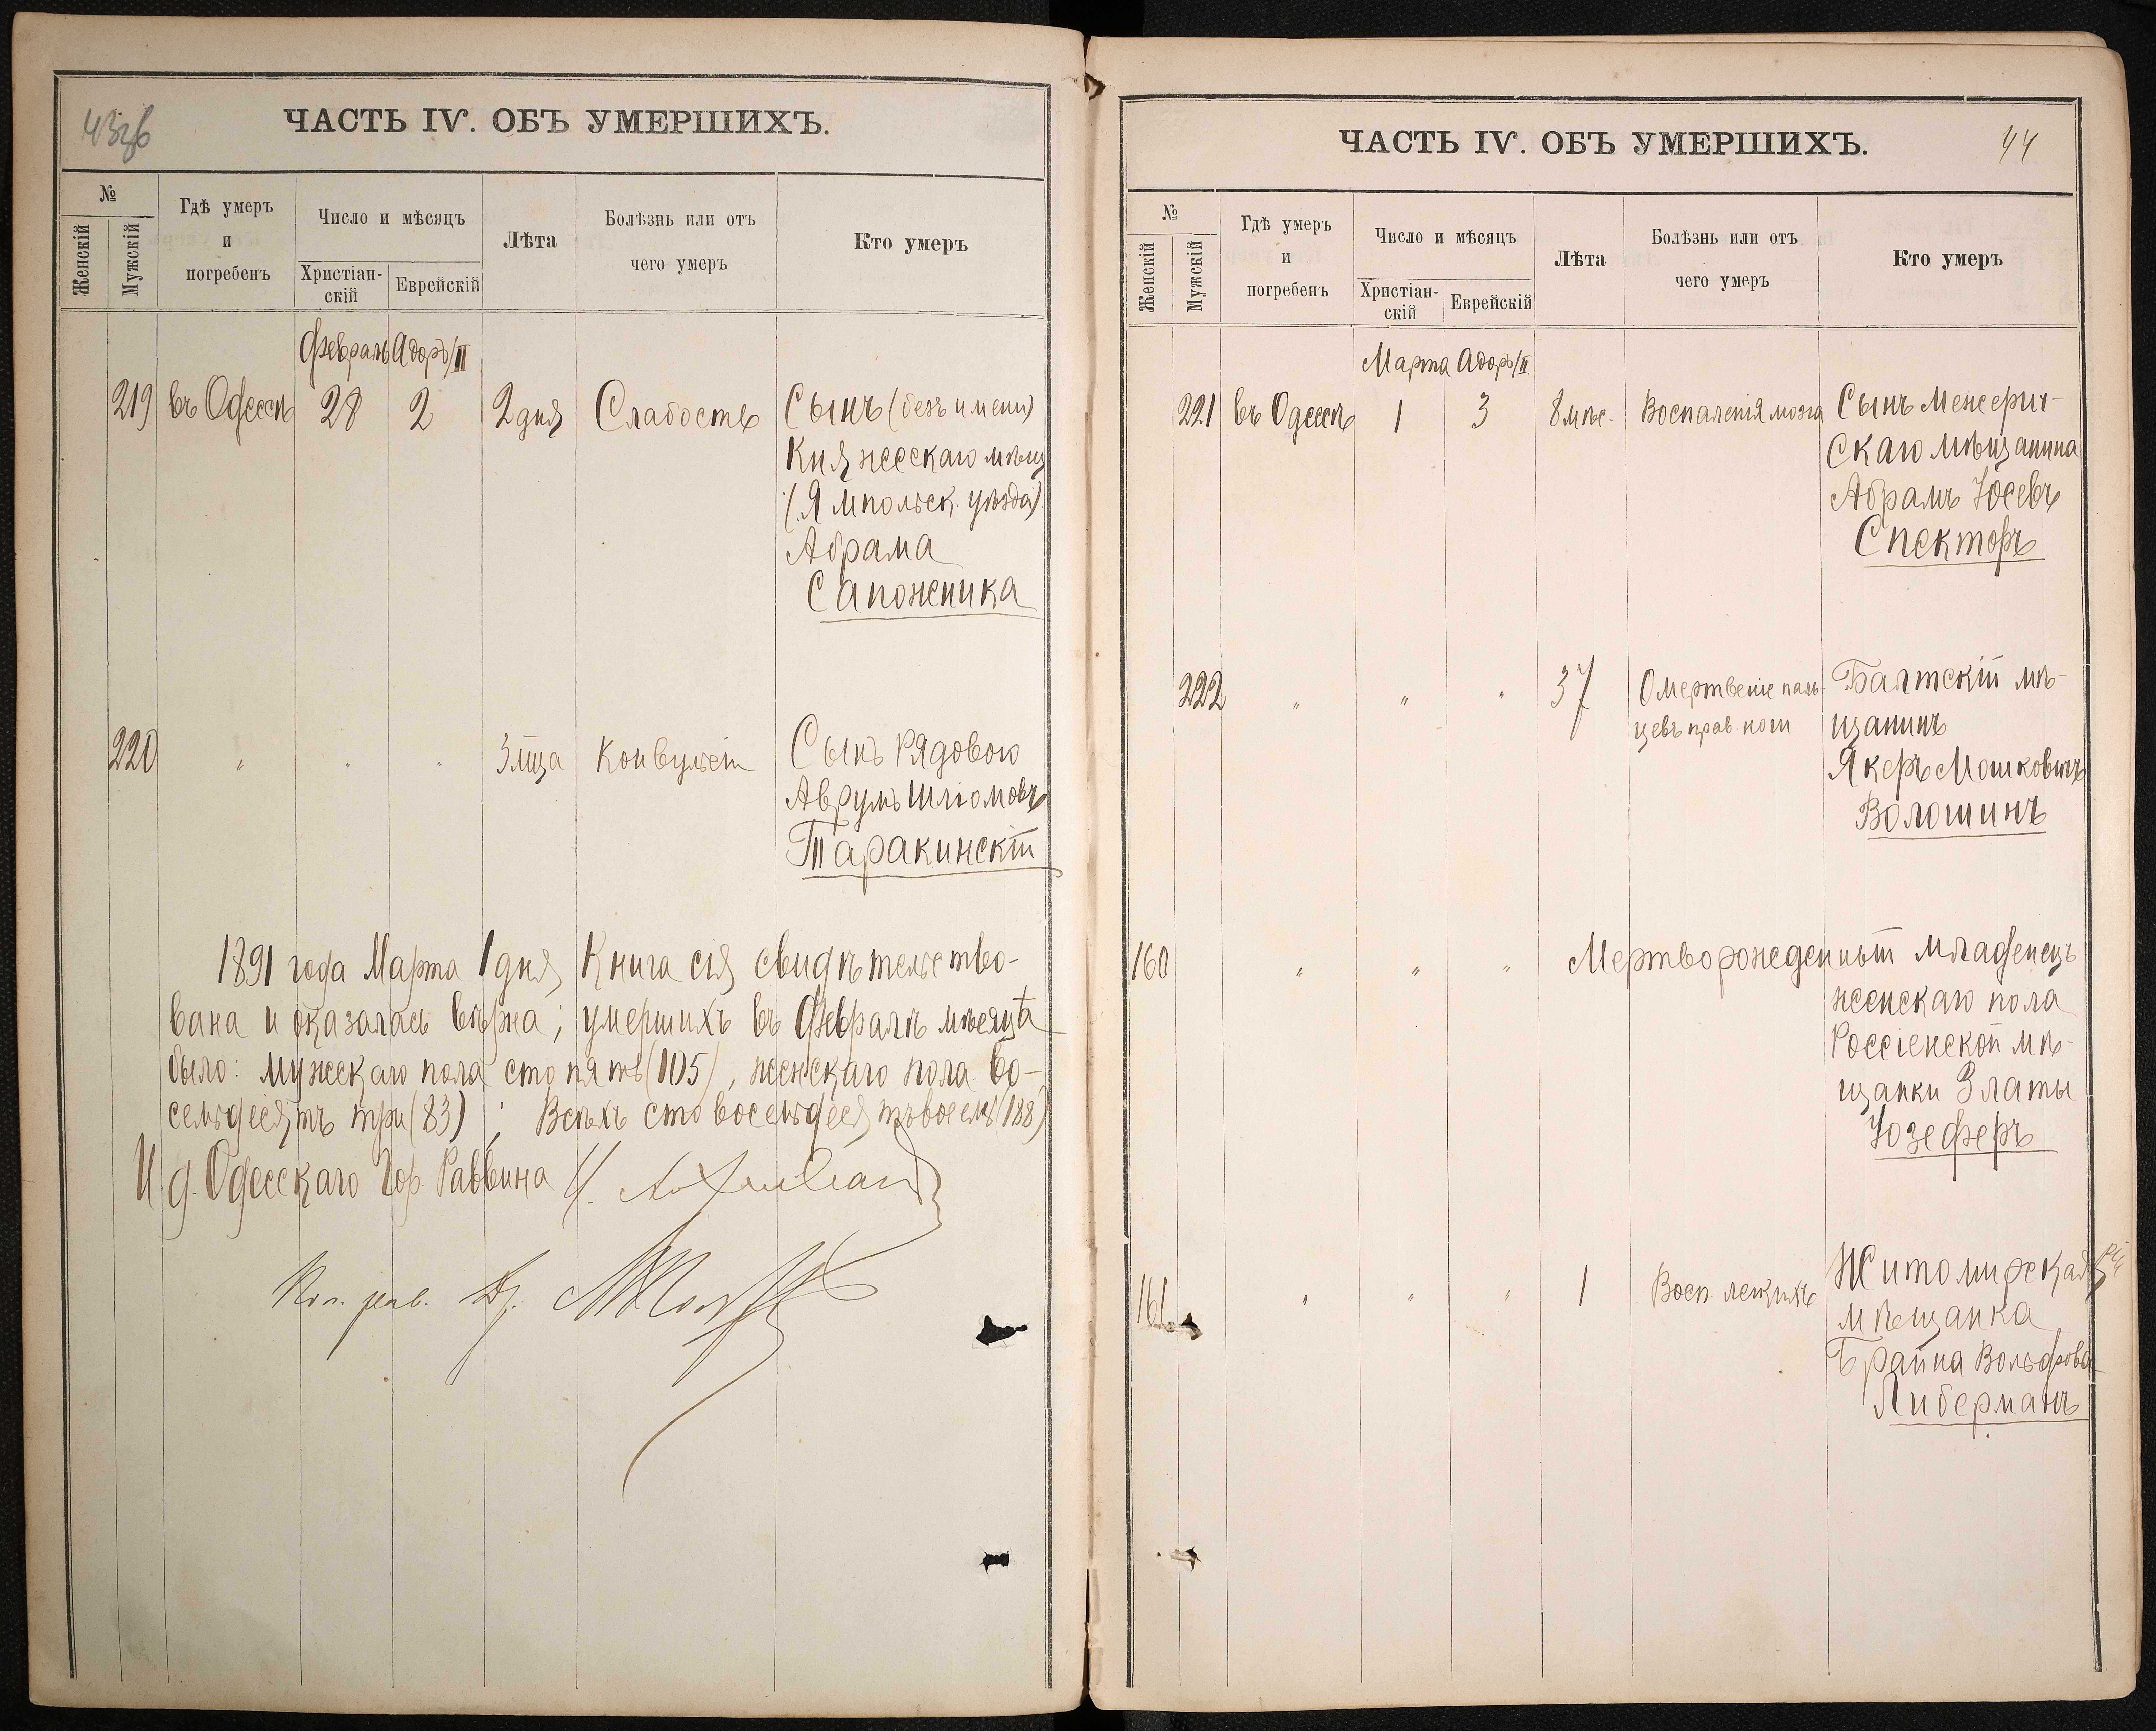 43об
ЧАСТЬ IV. ОБЪ УМЕРШИХЪ.
№
Женскій
Мужскій
Гдѣ умеръ
и
погребенъ
Число и мѣсяцъ
Христіан-
скій
Еврейскій
Лѣта
Болѣзнь или отъ
чего умеръ
Кто умеръ
Февраль Адоръ/II
219 въ Одессѣ 28 2 2 дня Слабость Сынъ (безъ имени)
Княжескаго мѣщ
(Ямпольск. уѣзда)
Абрама
Сапожника
220 " " " 3 мца Конвульсіи Сынъ Рядового
Аврумъ Шліомовъ
Таракинскій
1891 года Марта 1 дня Книга сія свидѣтельство-
вана и оказалась вѣрна; умершихъ въ Февралѣ мѣсяцѣ
было: мужескаго пола сто пять (105), женскаго пола во-
семьдесятъ три (83); Всѣхъ сто восемьдесятъ восемь (188)
И д. Одесскаго Гор. Раввина
ЧАСТЬ IV. ОБЪ УМЕРШИХЪ.
44
№
Женскій
Мужскій
Гдѣ умеръ
и
погребенъ
Число и мѣсяцъ
Христіан-
скій
Еврейскій
Лѣта
Болѣзнь или отъ
чего умеръ
Кто умеръ
Марта Адоръ/II
221 въ Одессѣ 1 3 8 мѣс. Воспаленія мозга Сынъ Межерич-
скаго мѣщанина
Абрамъ Юсевъ
Спекторъ
222 " " " 37 Омертвеніе паль- Балтскій мѣ-
цевъ прав. ноги щанинъ
Якеръ Мошковичъ
Волошинъ
160 " " " Мертворожденный младенецъ
женскаго пола
Россіенской мѣ-
щанки Златы
Юзеферъ
161 " " " 1 Восп легкихъ Житомирская
мѣщанка
Брайна Вольфова
Либерманъ